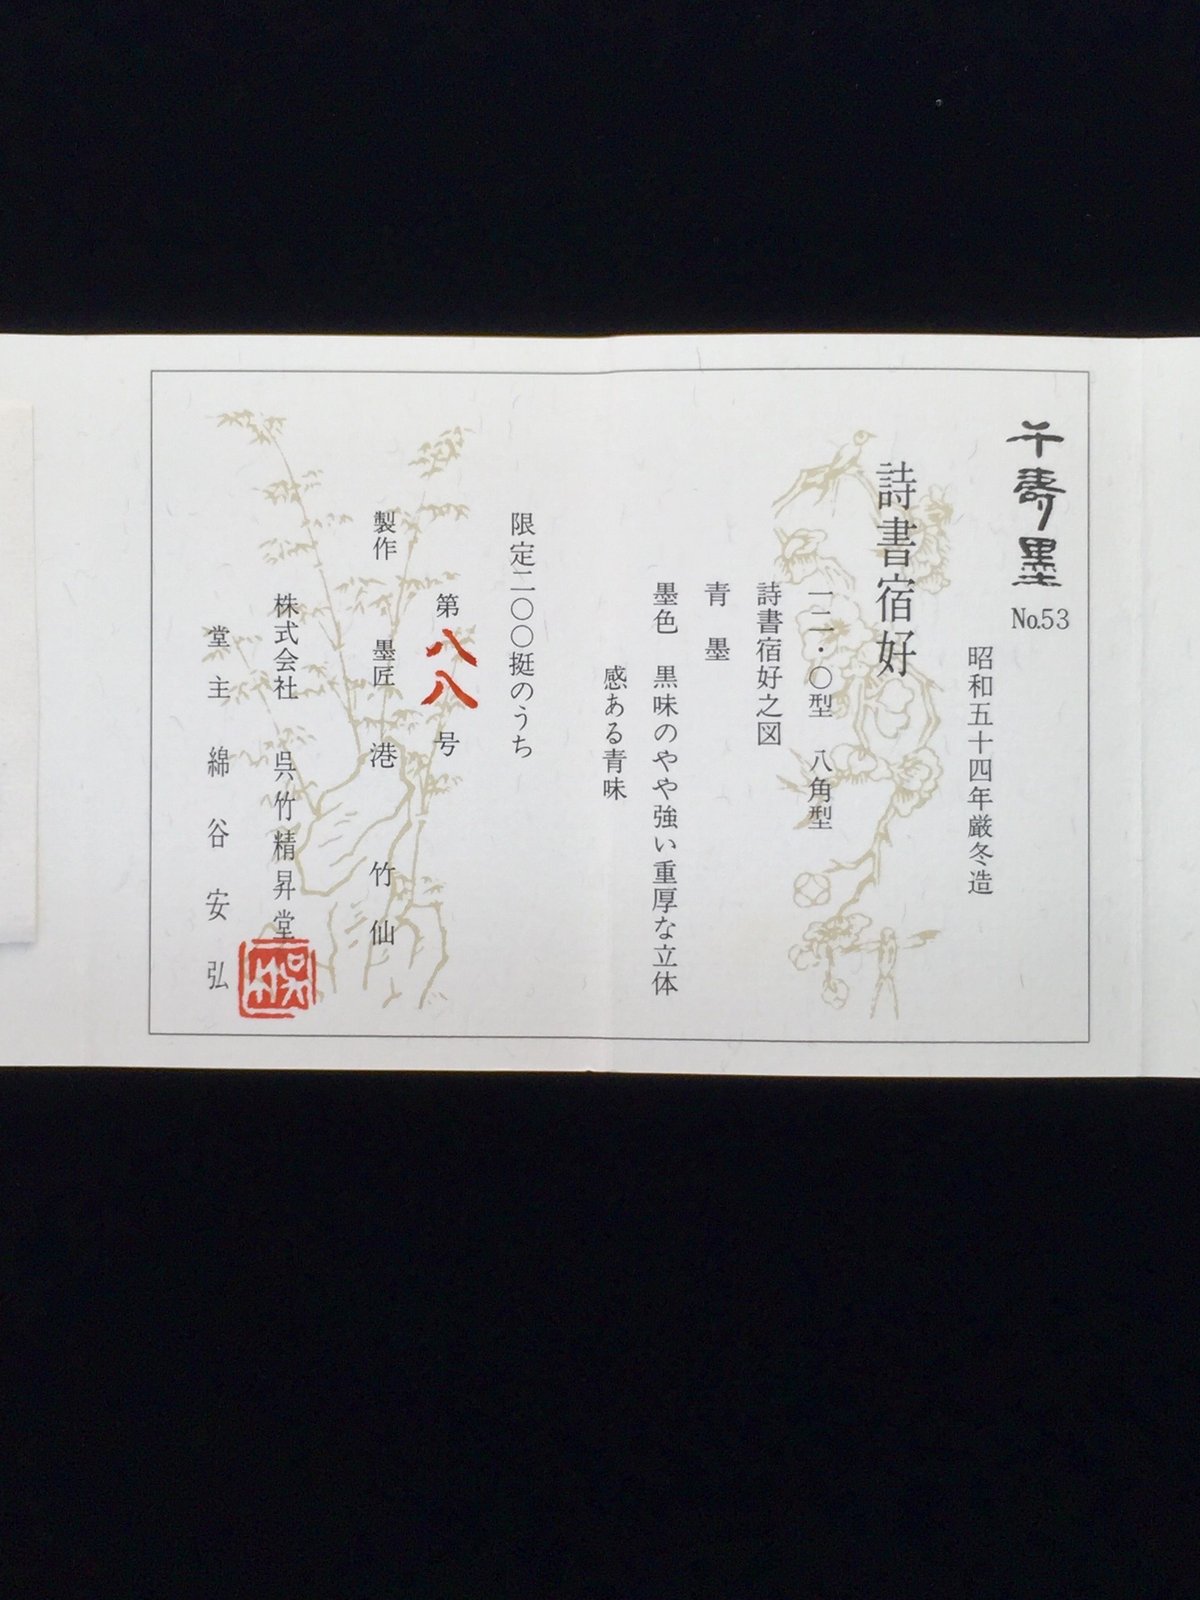 千壽墨 No.53
昭和五十四年厳冬造
詩書宿好
一二・〇型 八角型
詩書宿好之図
青墨
墨色 黒味のやや強い重厚な立体
感ある青味
限定二〇〇挺のうち
第八八号
製作 墨匠 港 竹仙
株式会社 呉竹精昇堂
堂主 綿谷安弘
呉竹